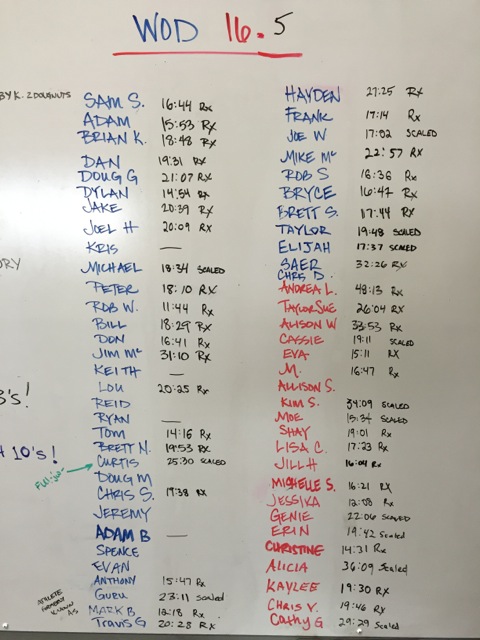 WOD 16.5
BY K. 2 DOUGNUTS
SAM S. 16:44 Rx
ADAM 15:53 RX
BRIAN K. 18:48 RX
DAN 19:31 RX
DOUG G 21:07 RX
DYLAN 14:54 Rx
JAKE 20:39 RX
JOEL H 20:09 RX
KRIS —
ORY
MICHAEL 18:34 SCALED
PETER 18:10 RX
ROB W. 11:44 RX
BILL 18:29 RX
DON 16:41 RX
JIM Mc 31:10 RX
KEITH —
B's!
LOU 20:25 Rx
REID
RYAN —
TOM 14:16 Rx
BRETT N. 19:53 RX
H 10's!
CURTIS 25:30 SCALED
DOUG M
CHRIS S. 17:38 RX
JEREMY
ADAM B —
SPENCE
EVAN
ANTHONY 15:47 RX
GURU 23:11 Scaled
ATHLETE FORMERLY KNOWN AS
MARK B 12:18 Rx
Travis G 20:28 RX
HAYDEN 27:25 RX
FRANK 17:14 RX
JOE W 17:02 SCALED
MIKE Mc 22:57 RX
ROB S 16:36 Rx
BRYCE 16:47 RX
BRETT S. 17:44 RX
TAYLOR 19:48 SCALED
ELIJAH 17:37 SCALED
SAER 32:26 RX
CHRIS D.
ANDREA L. 48:13 RX
TAYLOR SUE 26:04 RX
ALISON W 33:53 RX
CASSIE 19:11 SCALED
EVA 15:11 RX
M. 16:47 RX
ALLISON S.
KIM S. 34:09 SCALED
MOE 15:34 SCALED
SHAY 19:01 RX
LISA C. 17:23 RX
JILL H 16:04 RX
MICHELLE S. 16:21 RX
JESSIKA 12:58 Rx
GENIE 22:06 SCALED
ERIN 19:42 Scaled
CHRISTINE 14:31 Rx
ALICIA 36:09 Scaled
KAYLEE 19:30 RX
CHRIS Y. 19:46 RX
Cathy G 29:29 Scaled